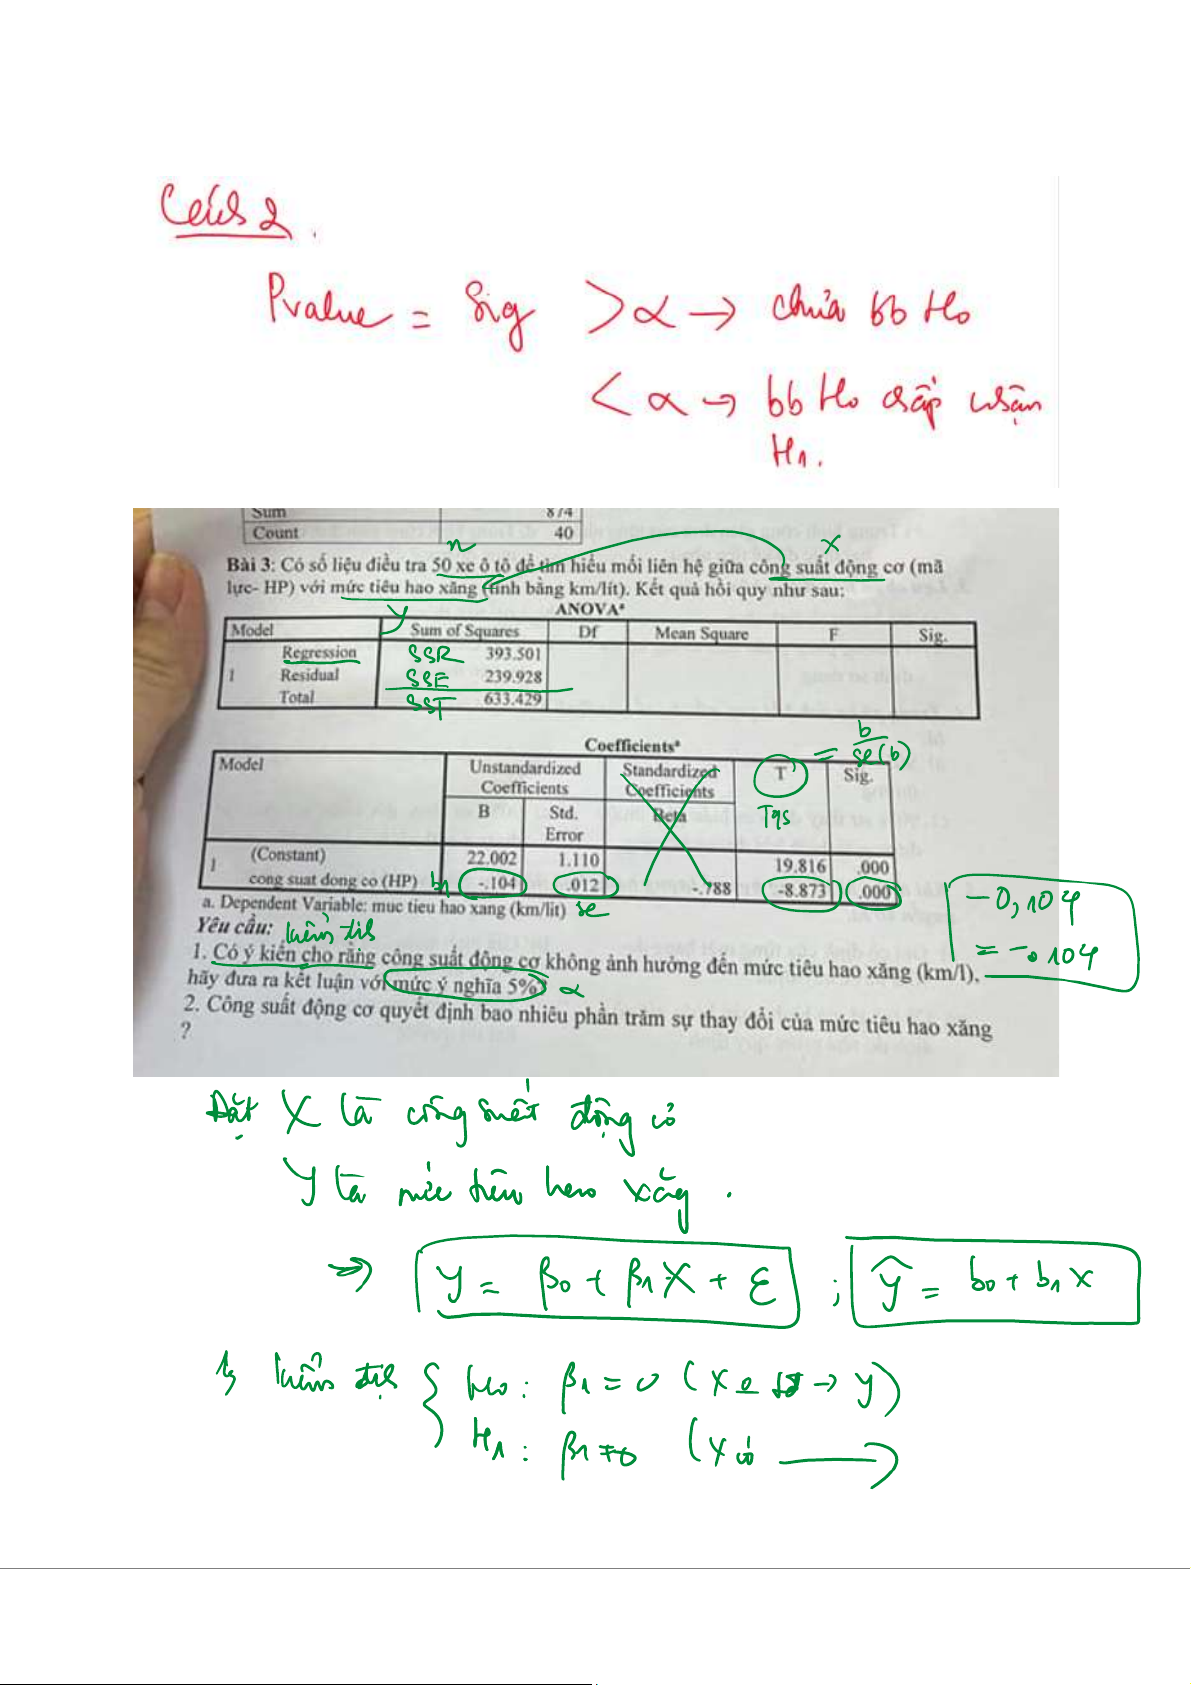 Cách 2.
Pvalue = Sig > α → chưa bb H0
< α → bb H0 chấp nhận
H1.
Sum 874
Count 40
n
x
Bài 3: Có số liệu điều tra 50 xe ô tô để tìm hiểu mối liên hệ giữa công suất động cơ (mã
lực- HP) với mức tiêu hao xăng (tính bằng km/lít). Kết quả hồi quy như sau:
y
ANOVAᵃ
Model Sum of Squares Df Mean Square F Sig.
Regression SSR 393.501
1 Residual SSE 239.928
Total SST 633.429
Coefficientsᵃ
= b / se(b)
Model Unstandardized Coefficients Standardized Coefficients T Sig.
B Std. Error Beta Tqs
1 (Constant) 22.002 1.110 19.816 .000
cong suat dong co (HP) b1 -.104 .012 -.788 -8.873 .000
a. Dependent Variable: muc tieu hao xang (km/lit) se
-0,104
= -.104
Yêu cầu: kiểm định
1. Có ý kiến cho rằng công suất động cơ không ảnh hưởng đến mức tiêu hao xăng (km/l),
hãy đưa ra kết luận với mức ý nghĩa 5% α
2. Công suất động cơ quyết định bao nhiêu phần trăm sự thay đổi của mức tiêu hao xăng
?
Đặt X là công suất động cơ
Y là mức tiêu hao xăng.
⇒ Y = β0 + β1X + ε ; ŷ = b0 + b1x
1, kiểm định { H0: β1 = 0 (X → Y)
H1: β1 ≠ 0 (X có →)